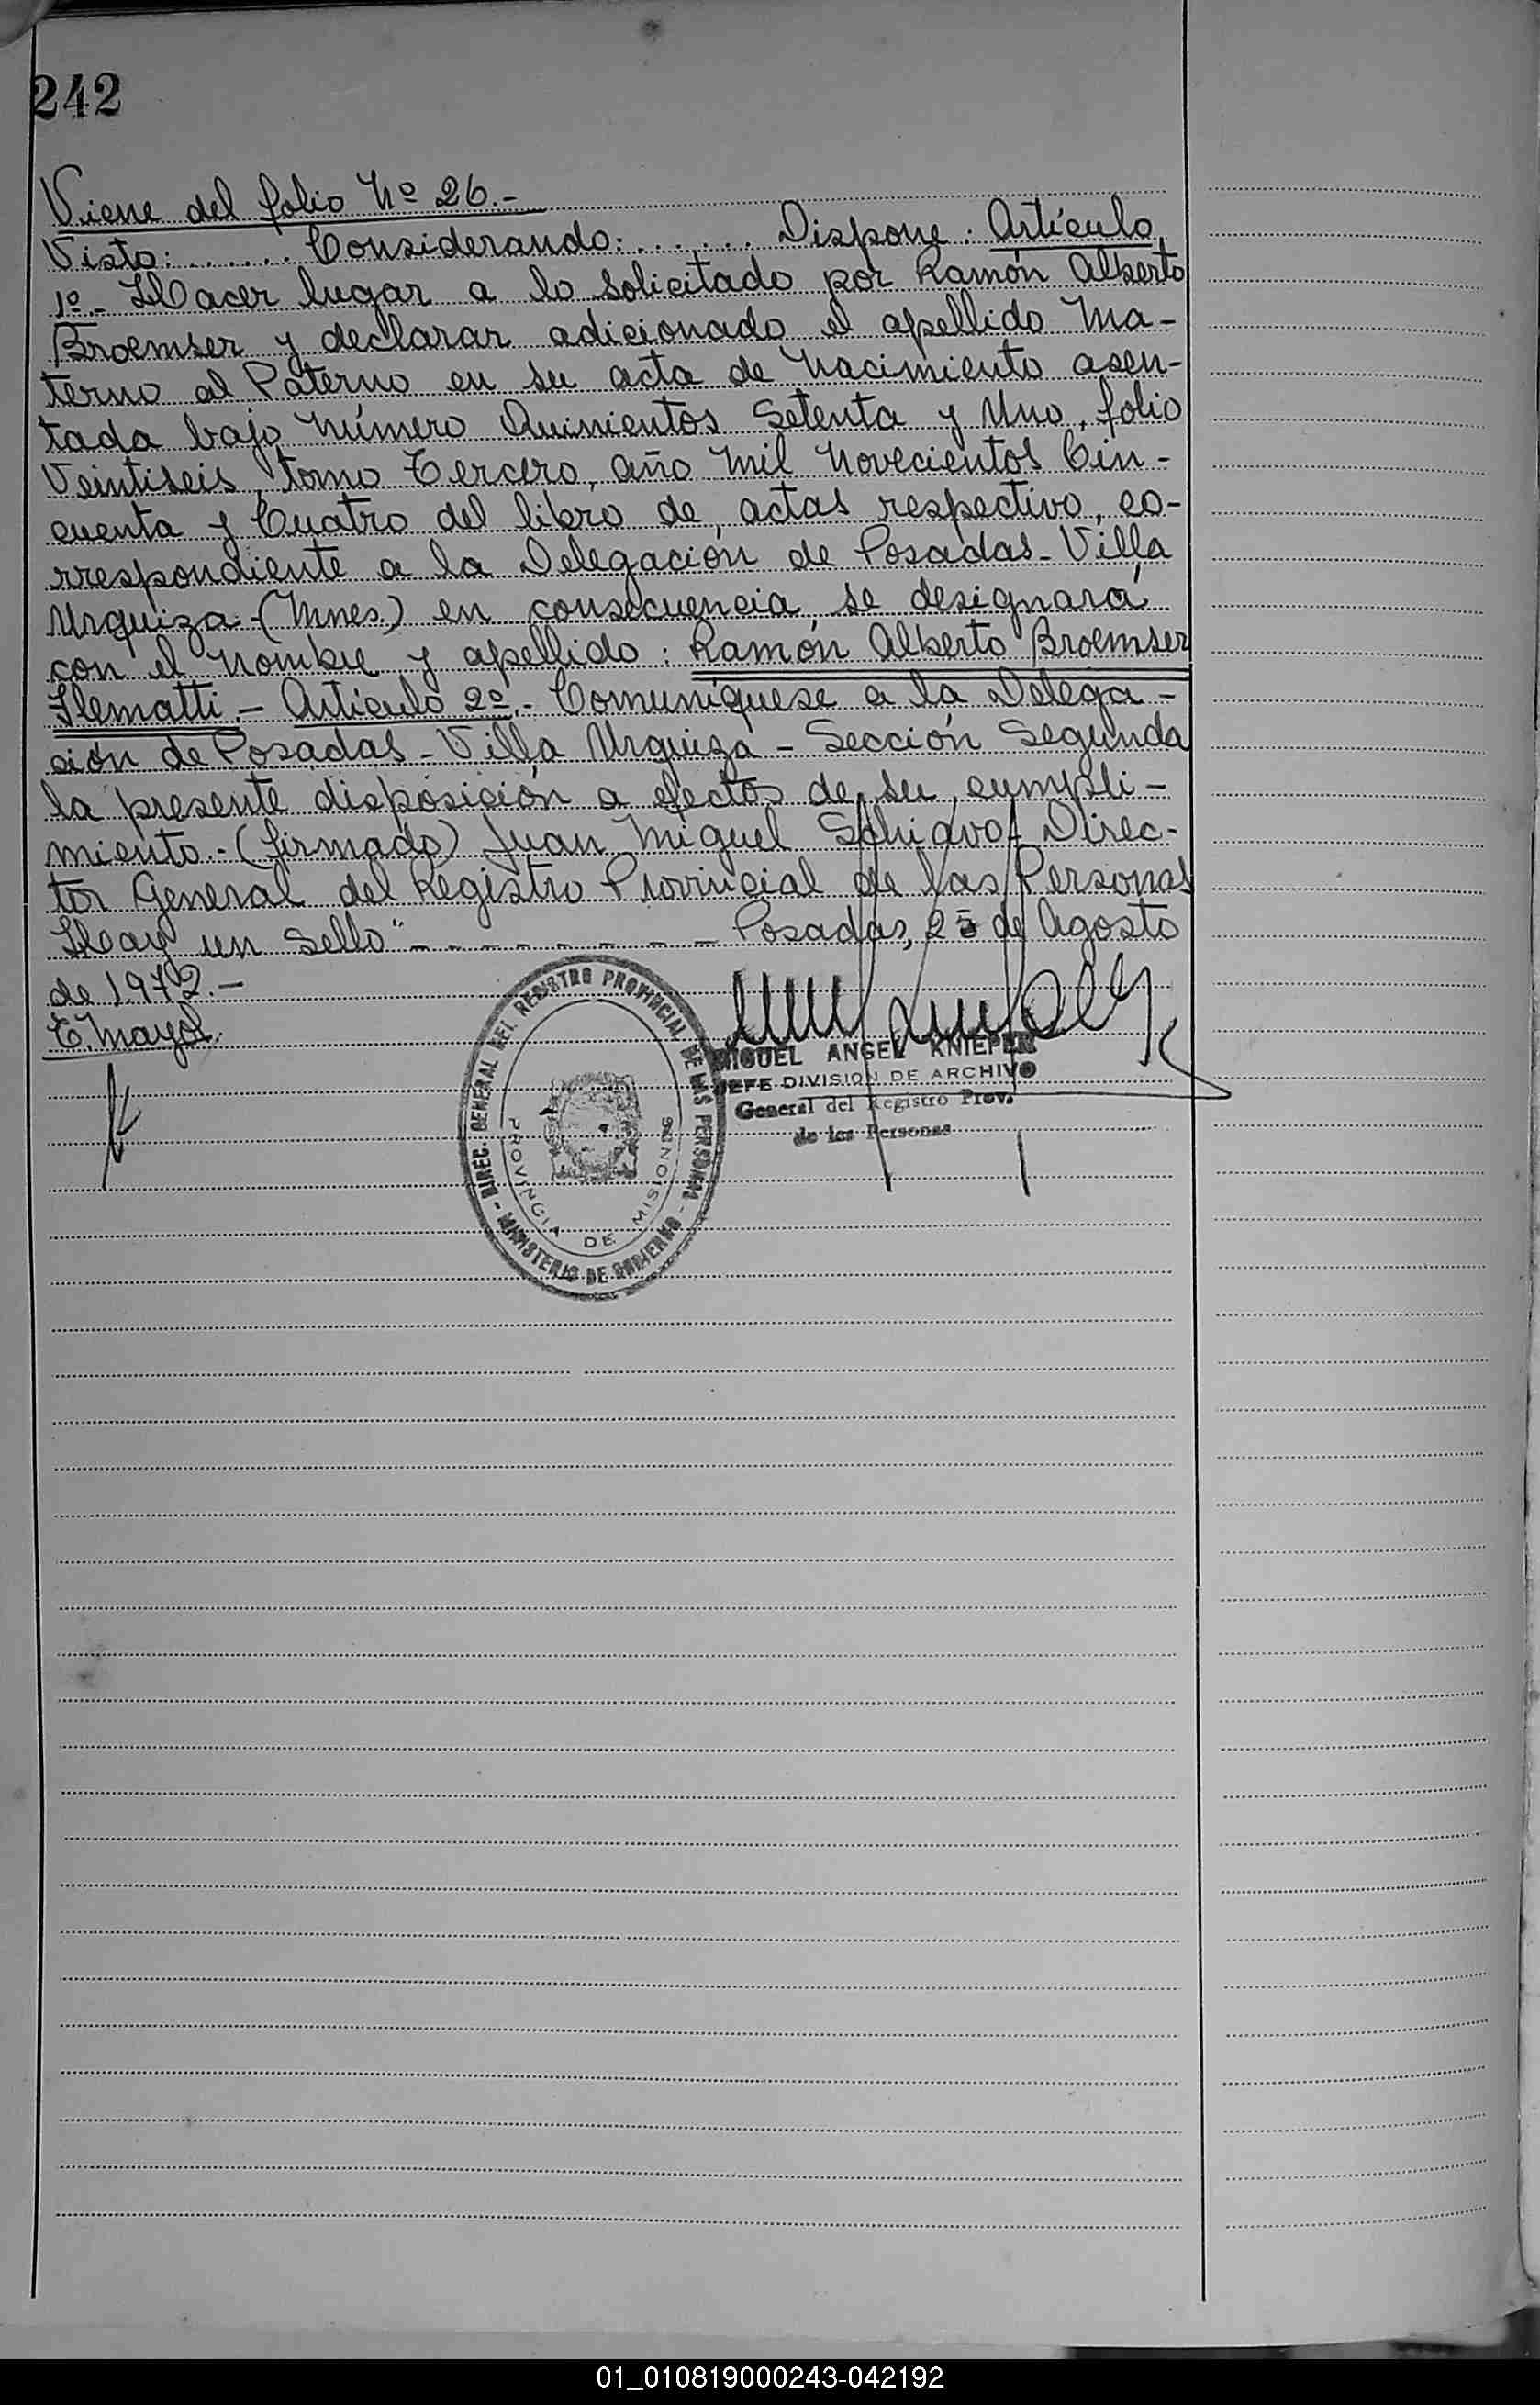 242
Viene del folio Nº 26.-
Visto: ...... Considerando: ...... Dispone: Artículo
1º.- Hacer lugar a lo solicitado por Ramón Alberto
Broemser y declarar adicionado el apellido Ma-
terno al Paterno en su acta de Nacimiento asen-
tada bajo Número Quinientos Setenta y Uno, folio
Veintiseis, tomo Tercero, año Mil Novecientos Cin-
cuenta y Cuatro del libro de actas respectivo, co-
rrespondiente a la Delegación de Posadas-Villa
Urquiza-(Mnes.) en consecuencia se designará
con el Nombre y apellido: Ramón Alberto Broemser
Ilematti.- Artículo 2º.- Comuníquese a la Delega-
ción de Posadas-Villa Urquiza - Sección Segunda
la presente disposición a efectos de su cumpli-
miento.-(firmado) Juan Miguel Schiavo- Direc-
tor General del Registro Provincial de las Personas
Hay un Sello"- - - - - - - - Posadas, 25 de Agosto
de 1972.-
E. Mayol.
MIGUEL ANGEL KNIEPEN
JEFE DIVISION DE ARCHIVO
General del Registro Prov.
de las Personas
DIREC. GENERAL DEL REGISTRO PROVINCIAL DE LAS PERSONAS - MINISTERIO DE GOBIERNO -
PROVINCIA DE MISIONES
01_010819000243-042192